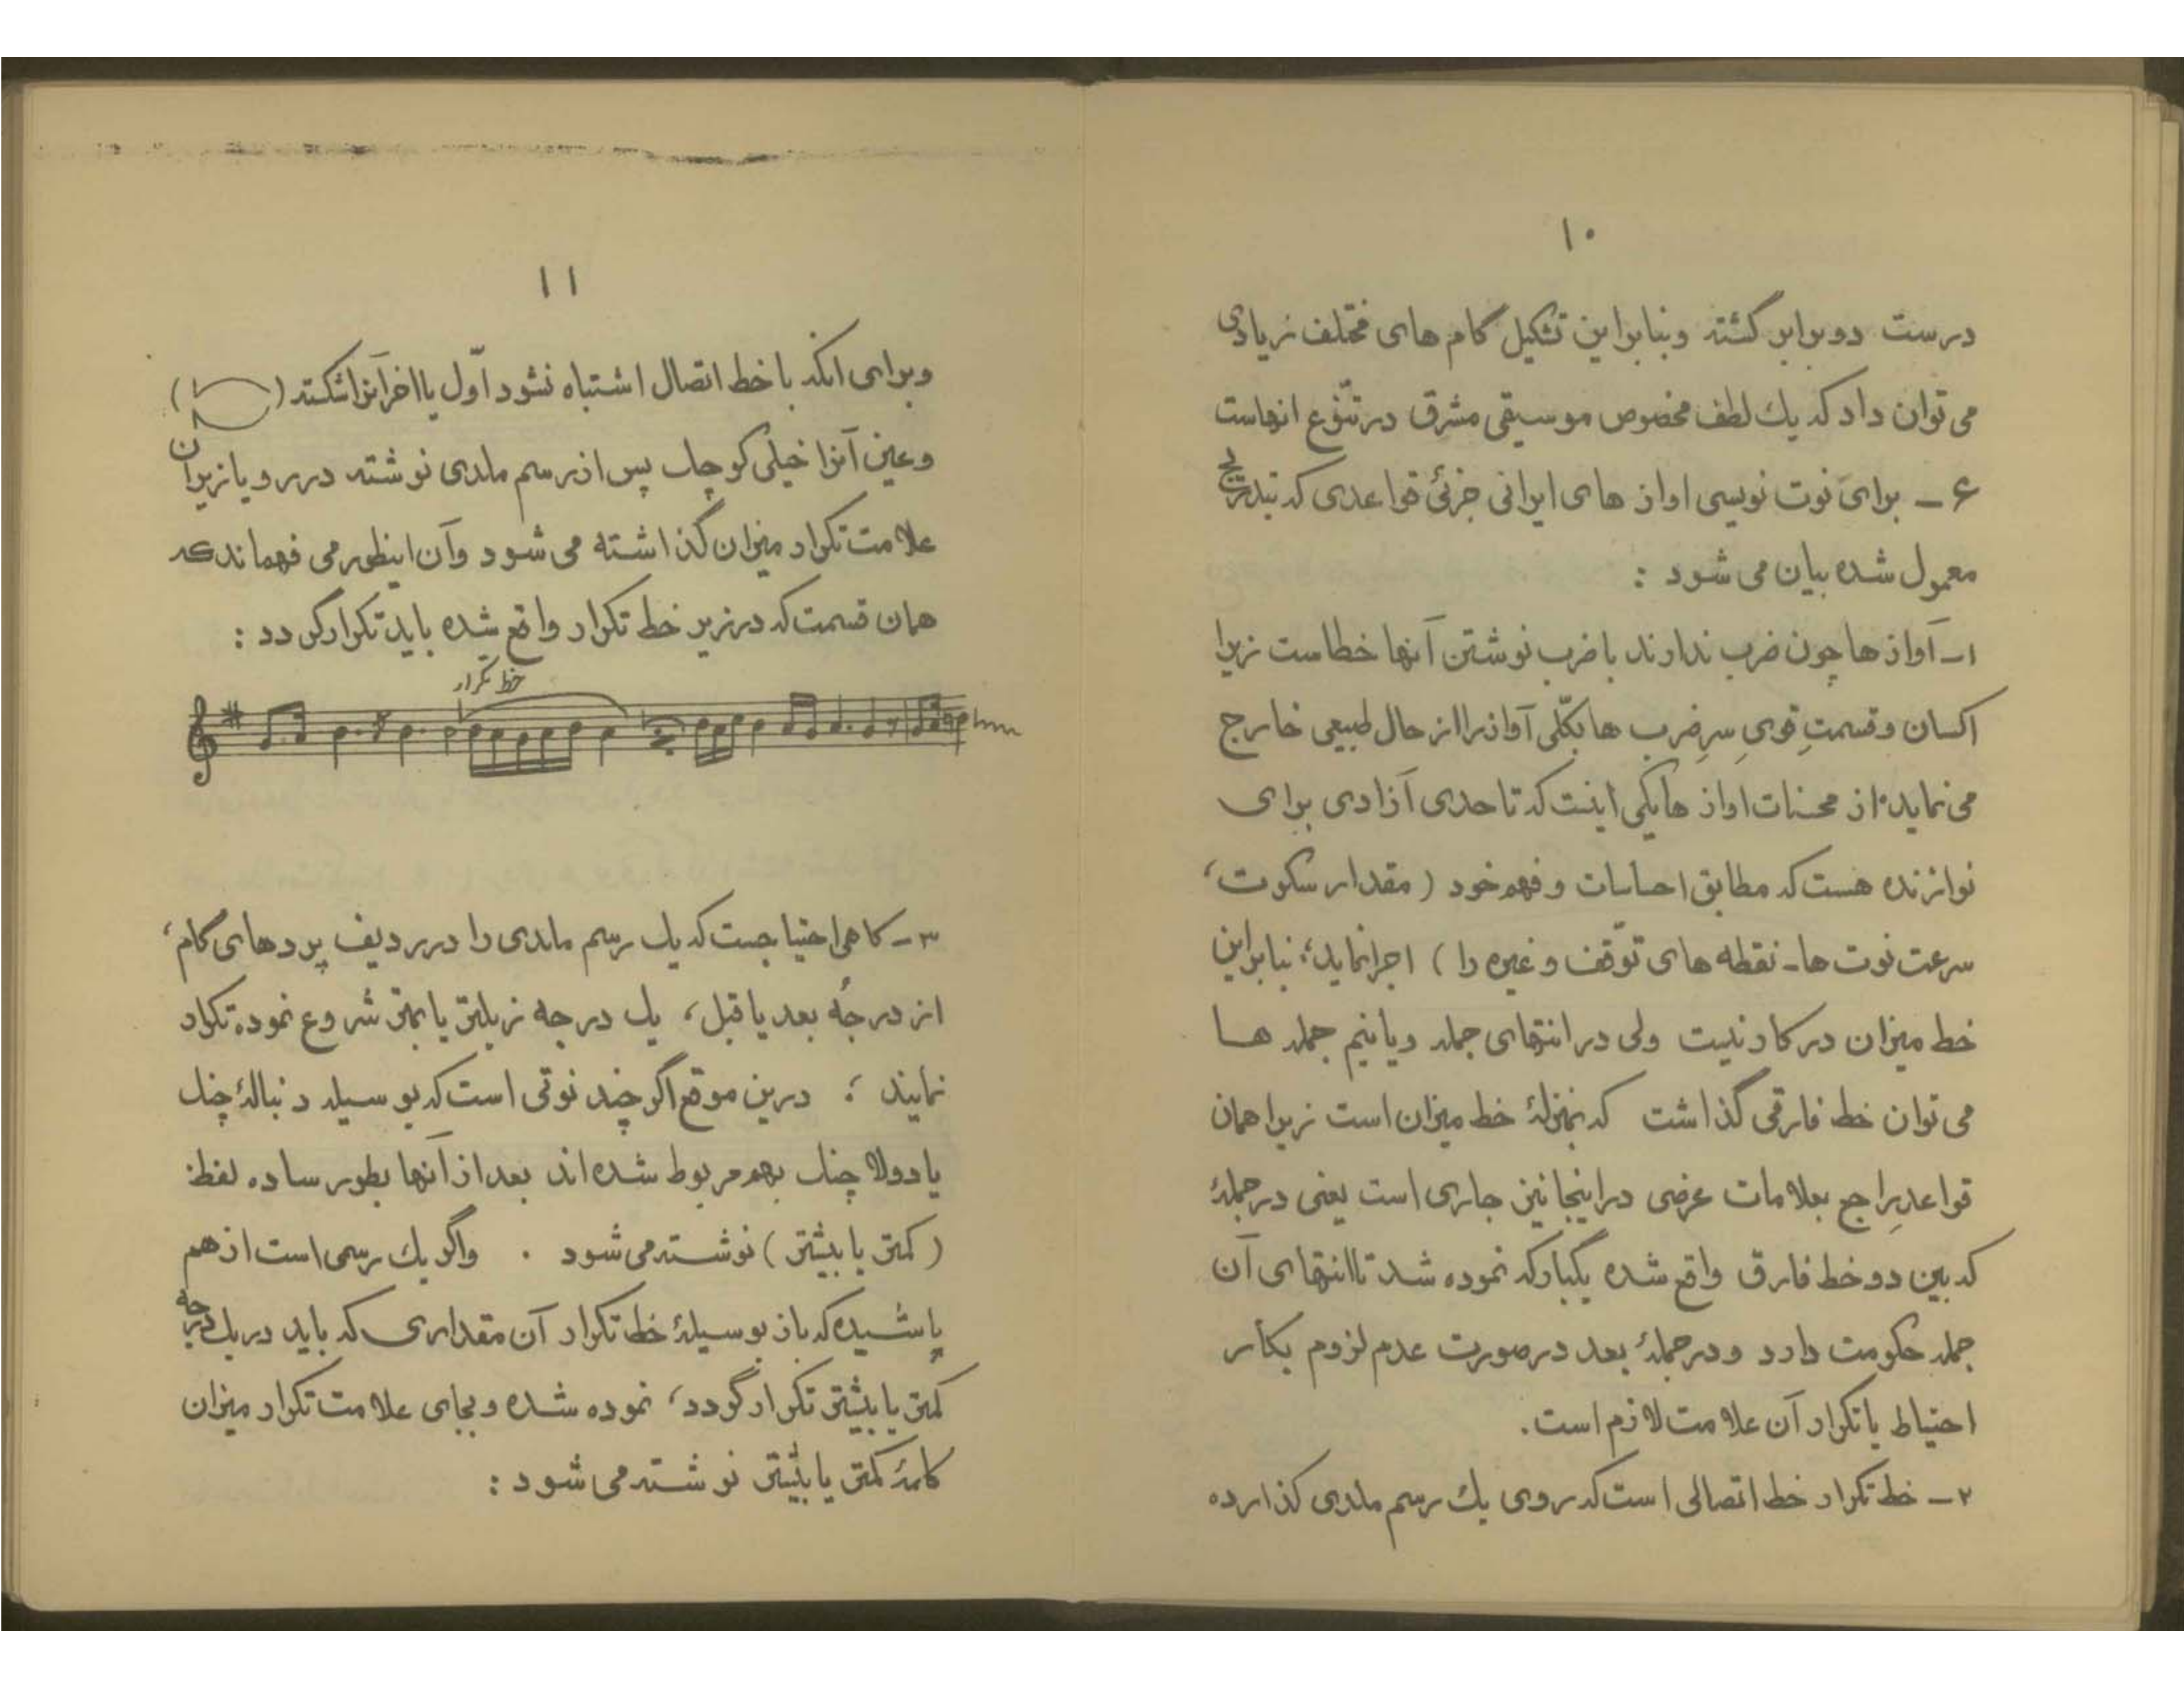 ۱۰
درست دوبرابر گشته وبنابراین تشکیل گام های مختلف زیادی
می توان داد که یك لطف مخصوص موسیقی مشرق در تنّوع انهاست
۶ ـ برای نوت نویسی اواز های ایرانی جزئی قواعدی که بتدریج
معمول شده بیان می شود :
۱ـ آوازها چون ضرب ندارند با ضرب نوشتن آنها خطاست زیرا
اکسان و قسمتِ قوی سرِضرب ها بکلّی آواز را از حال طبیعی خارج
می نماید. از محسنات اواز ها یکی اینست که تا حدی آزادی برای
نوازنده هست که مطابق احساسات و فهم خود ( مقدار سکوت،
سرعت نوت ها ـ نقطه های توّقف و غیره را ) اجرا نماید؛ بنابراین
خط میزان در کار نیست ولی در انتهای جمله ویا نیم جمله ها
می توان خط فارقی گذاشت که بمنزلهٔ خط میزان است زیرا همان
قواعدِ راجع بعلامات عرضی در اینجا نیز جاری است یعنی در جملهٔ
که بین دو خط فارق واقع شده یکبار که نموده شد تا انتهای آن
جمله حکومت دارد و در جملهٔ بعد در صورت عدم لزوم بکار
احتیاط یا تکرار آن علامت لازم است.
۲ ـ خط تکرار خط اتصالی است که روی یك رسم ملدی گذارده
۱۱
وبرای انکه با خط اتصال اشتباه نشود اوّل یا اخر آنرا شکسته ( )
و عین آنرا خیلی کوچك پس از رسم ملدی نوشته در رو یا زیر آن
علامت تکرار میزان گذاشته می شود وآن اینطور می فهماند که
همان قسمت که در زیر خط تکرار واقع شده باید تکرار گردد :
خط تکرار
۳ـ گاهی احتیاجست که یك رسم ملدی را در ردیف پرده‌های گام،
از درجهٔ بعد یا قبل، یك درجه زیرتر یا بمتر شروع نموده تکرار
نمایند ؛ درین موقع اگر چند نوتی است که بوسیله دنبالهٔ چنك
یا دولا چنك بهم مربوط شده اند بعد از آنها بطور ساده لفظ:
( کمتر یا بیشتر ) نوشته می شود . واگر یك رسمی است از هم
پاشیده که باز بوسیلهٔ خط تکرار آن مقداری که باید در یك درجه
کمتر یا بیشتر تکرار گردد، نموده شده و بجای علامت تکرار میزان
کلمهٔ کمتر یا بیشتر نوشته می شود :